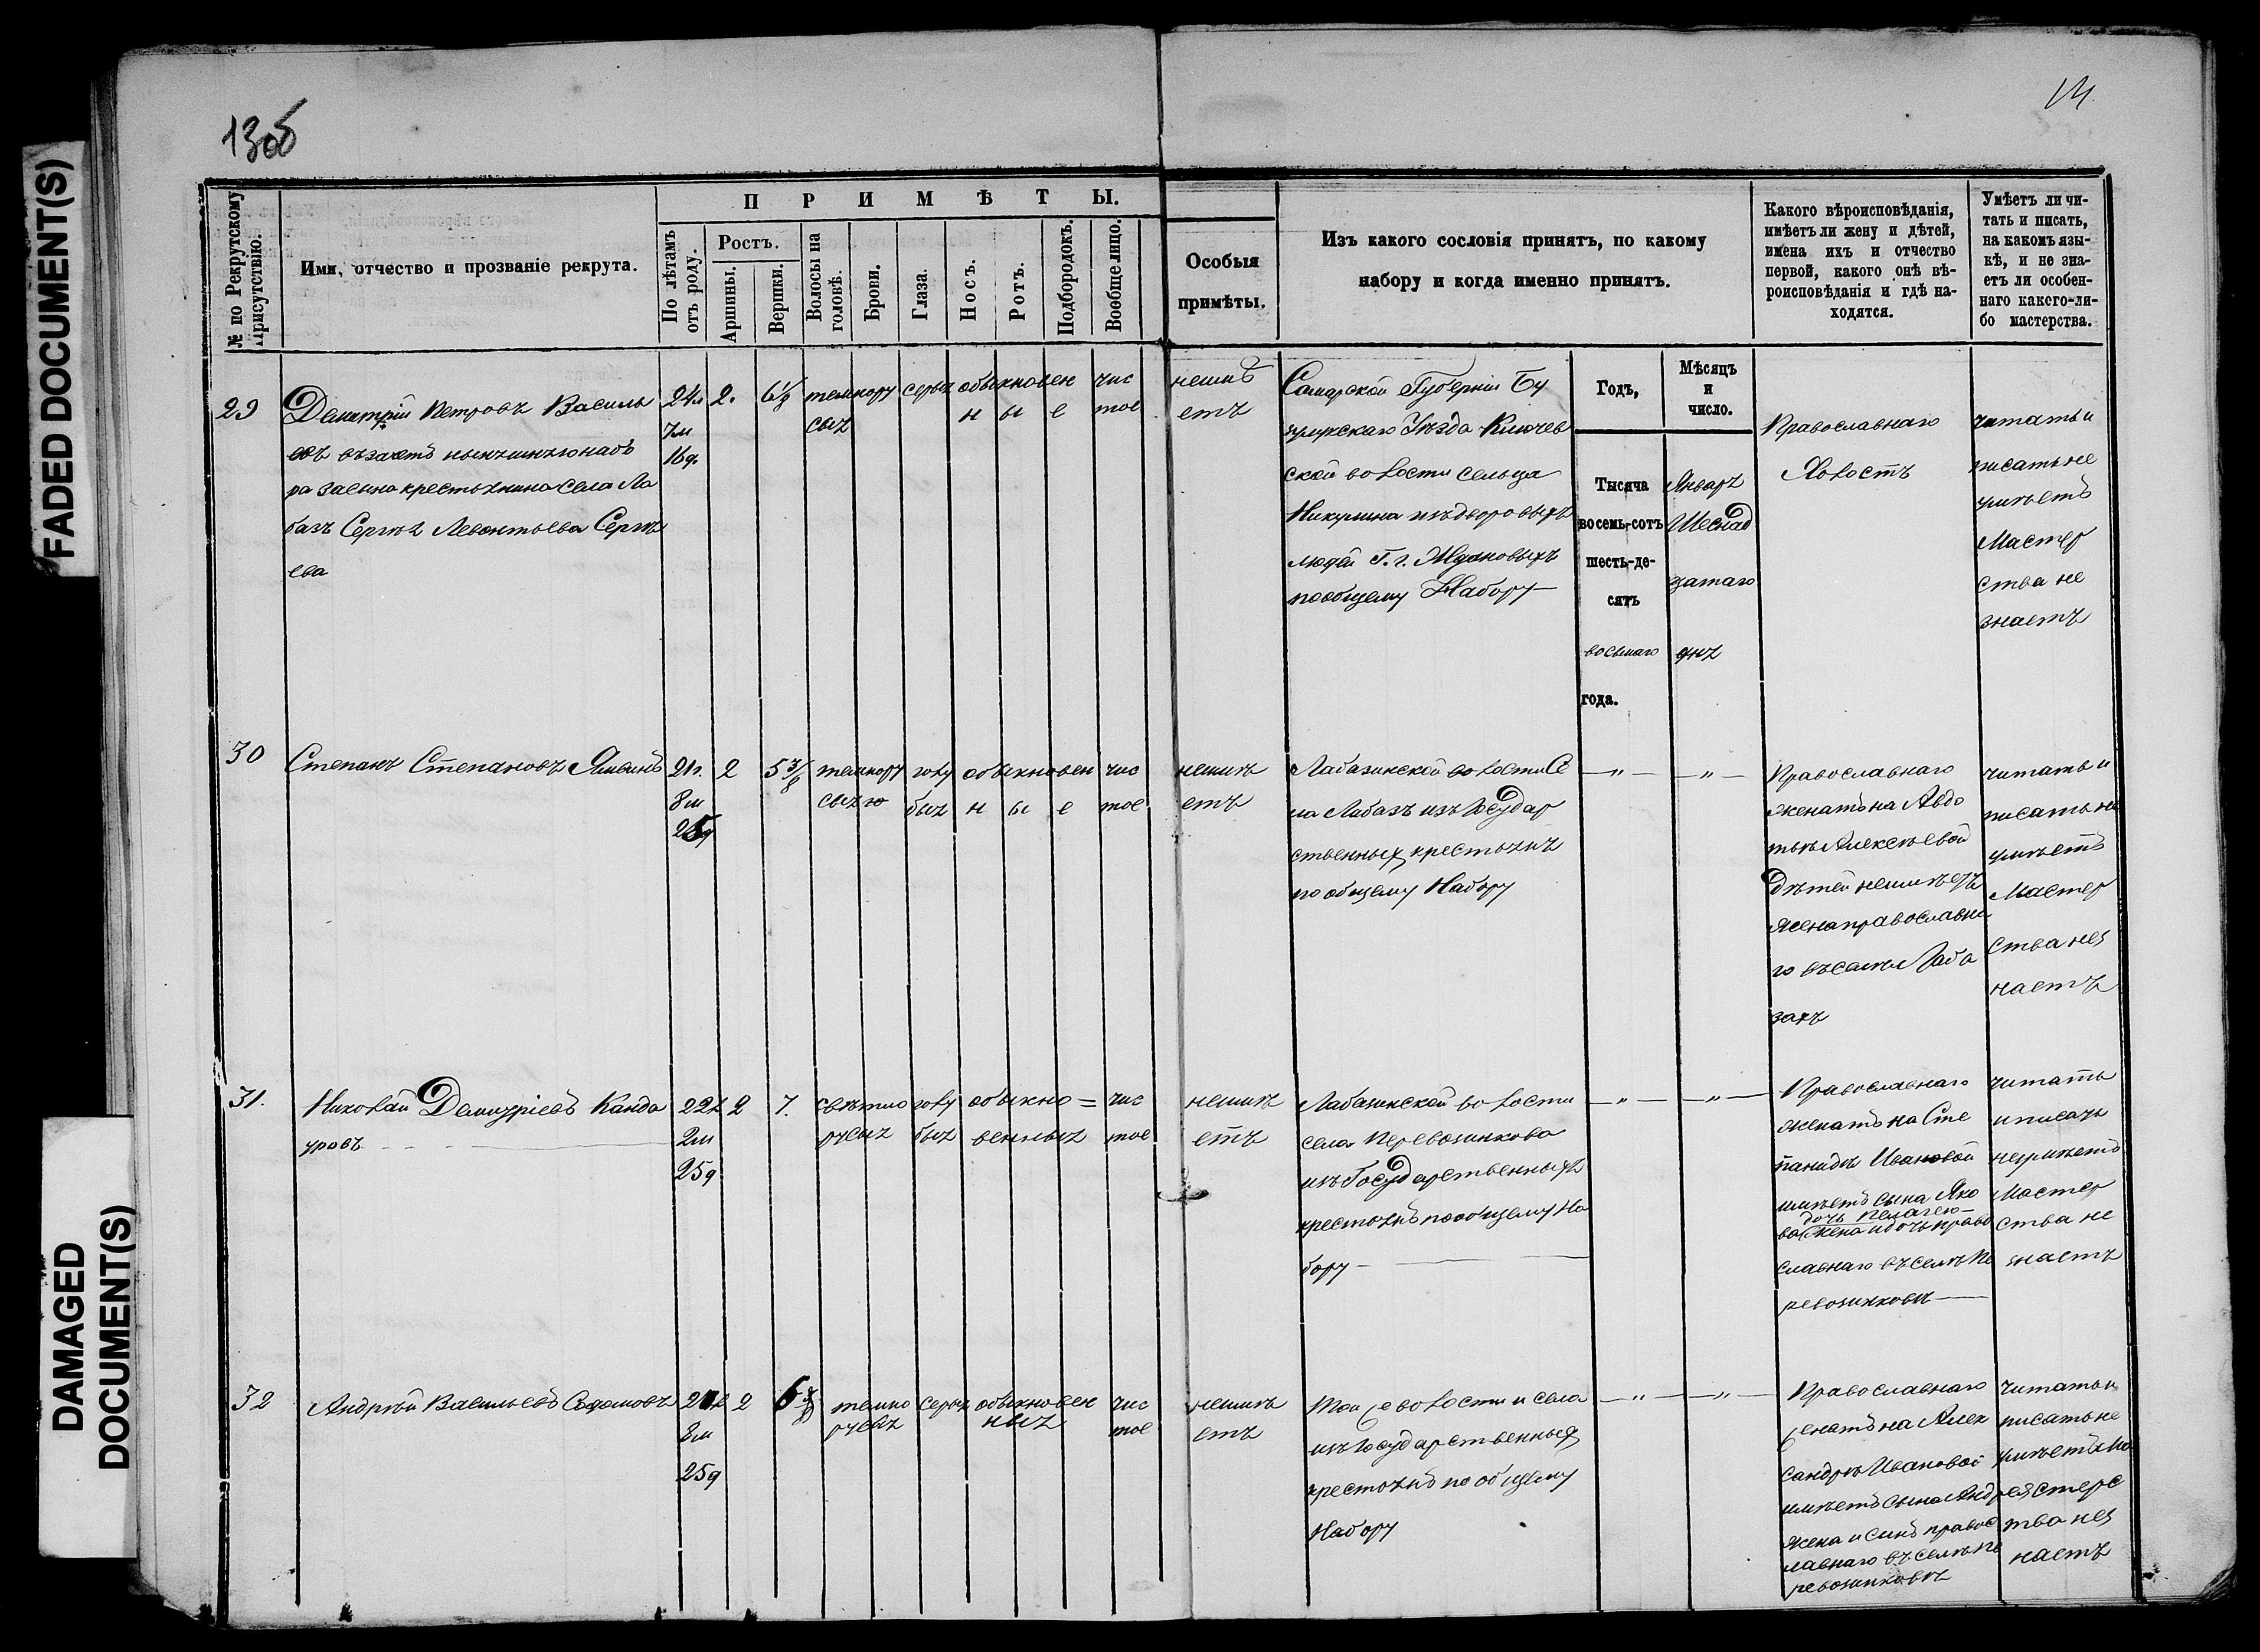 FADED DOCUMENT(S)
DAMAGED
DOCUMENT(S)
13об
14
№ по Рекрутскому
Присутствію.
Имя, отчество и прозваніе рекрута.
ПРИМѢТЫ.
По лѣтамъ
отъ роду.
Ростъ.
Аршины.
Вершки.
Волосы на
головѣ.
Брови.
Глаза.
Носъ.
Ротъ.
Подбородокъ.
Вообще лицо.
Особыя
примѣты.
Изъ какого сословія принятъ, по какому
набору и когда именно принятъ.
Какого вѣроисповѣданія,
имѣетъ ли жену и дѣтей,
имена ихъ и отчество
первой, какого онѣ вѣ-
роисповѣданія и гдѣ на-
ходятся.
Умѣетъ ли чи-
тать и писать,
на какомъ язы-
кѣ, и не зна-
етъ ли особен-
наго какого-ли-
бо мастерства.
29
Дмитрій Петровъ Василь
евъ въ зачетъ
ра за сына крестьянина села Ла
базъ Сергѣя Леонтьева Сергѣ
ева
24л
7м
16д.
2.
темнору
сыя
серые
обыкновен
н ы е
чис
тое
неимѣ
етъ
Самарской Губерніи Бу
зулукскаго Уѣзда Ключев
ской волости сельца
Никулина изъ дворовыхъ
людей Г. г. Ждановыхъ
пообщему Набору
Годъ,
Тысяча
восемь-сотъ
шесть-де-
сятъ
восьмаго
года.
Мѣсяцъ
и
число.
Января
Шеснад
цатаго
дня
Православнаго
Холостъ
читать и
писать не
умѣетъ
Мастер
ства не
знаетъ
30
Степанъ Степановъ Яшинъ
21г.
8м
25д
2
5 3/8
темнору
сыя
голу
быя
обыкновен
н ы е
чис
тое
неимѣ
етъ
Лабазинской волости Се
ла Лабазъ изъ Государ
ственныхъ крестьянъ
по общему Набору
— „ —
— „ —
Православнаго
женатъ на Авдо
тьѣ Алексѣевой
Дѣтей неимѣетъ
жена православна
го въ селѣ Лаба
захъ
читать и
писать не
умѣетъ
Мастер
ства нез
наетъ
31.
Николай Дмитріевъ Канда
уровъ
22л
2м
25д.
2
7.
свѣтло
русыя
голу
быя
обыкно=
венныя
чис
тое
неимѣ
етъ
Лабазинской волости
села Перевозинкова
изъ Государственныхъ
крестьянъ пообщему на
бору
— „ —
— „ —
Православнаго
женатъ на Сте
панидѣ Ивановой
имѣетъ сына Яко
дочь Пелагею
ва жена и дочь право
славнаго въ селѣ Пе
ревозинковѣ
читать
и писать
неумѣетъ
Мастер
ства не
знаетъ
32
Андрѣй Васильевъ
21л
8м
25д
2
6
темно
русыя
серыя
обыкновен
ныя
чис
тое
неимѣ
етъ
Той же волости и села
изъ Государственныхъ
крестьянъ по общему
Набору
— „ —
— „ —
Православнаго
женатъ на Алек
сандрѣ Ивановой
имѣетъ сына Андрея
жена и сынъ правос
лавнаго въ селѣ Пе
ревозинковѣ
читать и
писать не
умѣетъ Ма
стерс
тва нез
наетъ